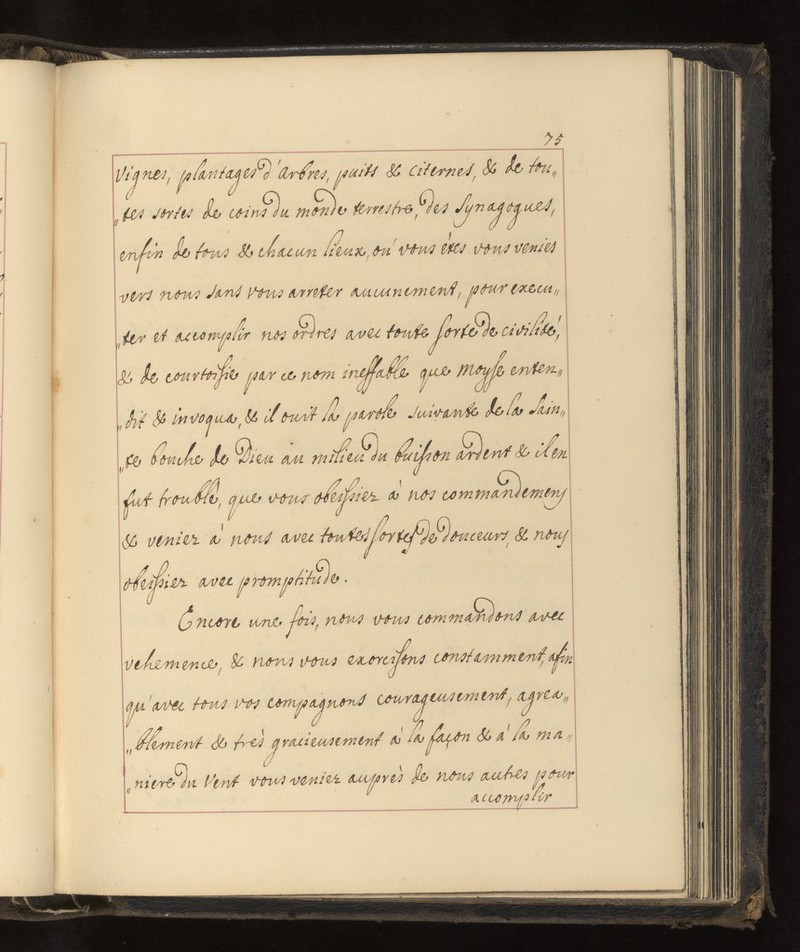 75
Vignes, plantages d'Arbres, puits & Citernes, & de tou„
„tes sortes de coins du monde terrestre, des Synagogues,
enfin de tous & chacun lieux, ou' vous étes vous venies
vers nous sans vous arreter aucunement, pour execu„
„ter et accomplir nos ordres avec toute sorte de civilité,
& de courtoisie par ce nom ineffable que Moyse enten„
„dit & invoqua, & il ouit la parole suivante de la Sain„
„te bouche de Dieu au milieu du buisson ardent & il en
fut troublé, que vous obeissiez à nos commandemens
& veniez à nous avec toutes sortes de douceurs, & nous
obeissiez avec promptitude.
Encore une fois, nous vous commandons avec
vehemence, & nous vous exorcisons constamment, afin
qu'avec tous vos compagnons courageusement, agrea„
„blement & très gracieusement à la façon & à la ma„
„niere du Vent vous veniez auprès de nous autres pour
accomplir